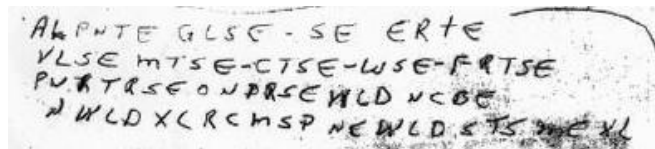 ALPNTE GLSE-SE ERTE
VLSE MTSE-CTSE-WSE-FRTSE
PNRTRSEONDRSEWLD NCBE
NWLDXLRCMSP NEWLDSTSMEXL